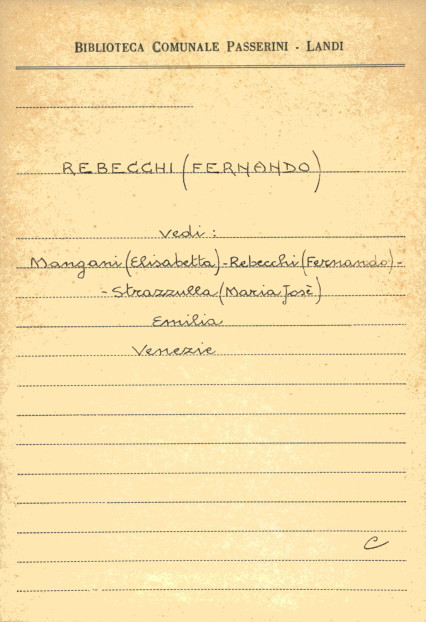 BIBLIOTECA COMUNALE PASSERINI - LANDI
REBECCHI (FERNANDO)
Vedi:
Mangani (Elisabetta) - Rebecchi (Fernando) -
- Strazzulla (Maria Josè)
Emilia
Venezie
C